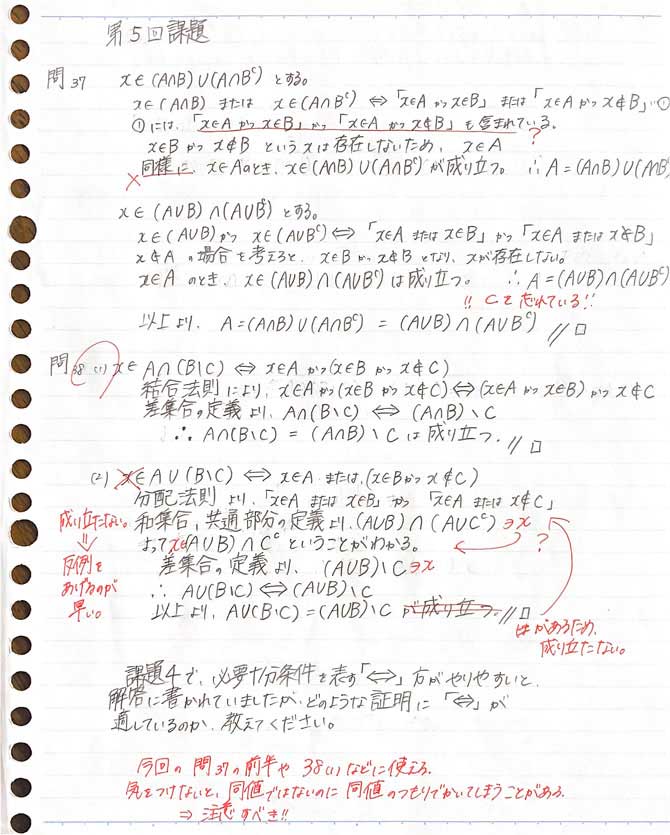 第5回課題
問37 x∈(A∩B)∪(A∩Bᶜ)とする。
x∈(A∩B) または x∈(A∩Bᶜ) ⇔ 「x∈A かつ x∈B」 または 「x∈A かつ x∉B」…①
①には、「x∈A かつ x∈B」か「x∈A かつ x∉B」も含まれている。
?
x∈B かつ x∉B という xは存在しないため、 x∈A
× 同様に、x∈Aのとき、x∈(A∩B)∪(A∩Bᶜ)が成り立つ。 ∴A=(A∩B)∪(A∩Bᶜ
x∈(A∪B)∩(A∪Bᶜ)とする。
x∈(A∪B)かつ x∈(A∪Bᶜ)⇔「x∈A または x∈B」かつ「x∈A または x∉B」
x∉A の場合を考えると、x∈B かつ x∉B となり、xが存在しない。
x∈A のとき、x∈(A∪B)∩(A∪Bᶜ)は成り立つ。 ∴A=(A∪B)∩(A∪Bᶜ)
!! Cを忘れている!!
以上より、A=(A∩B)∪(A∩Bᶜ) = (A∪B)∩(A∪Bᶜ) //□
問38(1) x∈A∩(B\C) ⇔ x∈A かつ(x∈B かつ x∉C)
結合法則により、x∈A かつ(x∈B かつ x∉C)⇔(x∈A かつ x∈B) かつ x∉C
差集合の定義より、A∩(B\C) ⇔ (A∩B)\C
∴ A∩(B\C) = (A∩B)\C は成り立つ。//□
(2) x∈A∪(B\C) ⇔ x∈A または、(x∈Bかつ x∉C)
分配法則より、「x∈A または x∈B」かつ 「x∈A または x∉C」
成り立たない。
⇓
反例を
あげるのが
早い。
和集合、共通部分の定義より、(A∪B)∩(A∪Cᶜ)∋x
よって x∈(A∪B)∩Cᶜ ということがわかる。
?
差集合の定義より、(A∪B)\C∋x
∴ A∪(B\C)⇔(A∪B)\C
以上より、A∪(B\C)=(A∪B)\C が成り立つ。//□
があるため、
成り立たない。
課題4で、必要十分条件を表す「⇔」方がやりやすいと、
解答に書かれていましたが、どのような証明に「⇔」が
適しているのか、教えてください。
今回の問37の前半や38(1)などに使える。
気をつけないと、同値ではないのに同値のつもりでかいてしまうことがある。
⇒ 注意すべき!!